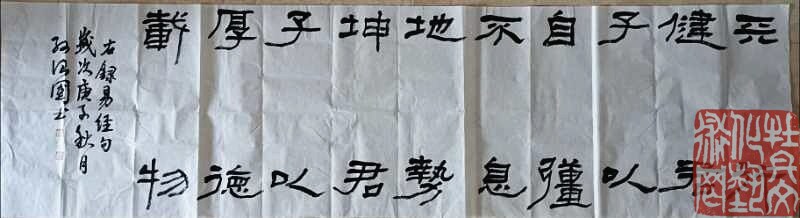 天
健君
子以
自彊
不息
地勢
坤君
子以
厚德
載物
右錄易經句
歲次庚子秋月
國书